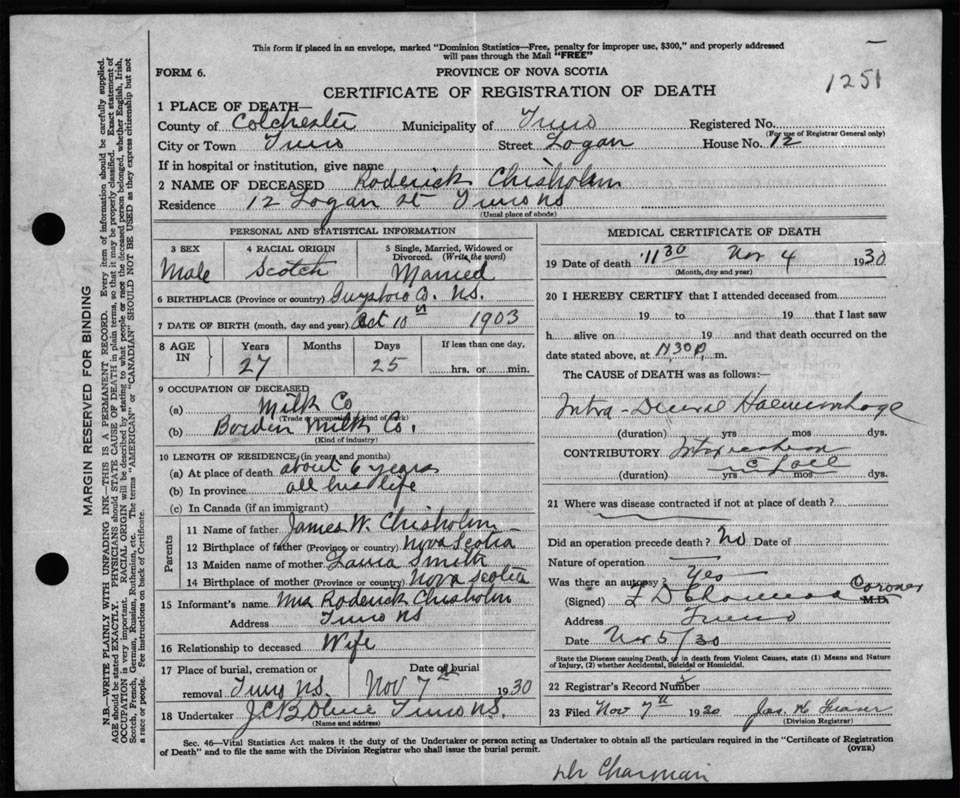 This form if placed in an envelope, marked "Dominion Statistics—Free, penalty for improper use, $300," and properly addressed
will pass through the Mail "FREE"
FORM 6.
PROVINCE OF NOVA SCOTIA
1251
CERTIFICATE OF REGISTRATION OF DEATH
1 PLACE OF DEATH—
County of Colchester Municipality of Truro Registered No.
(For use of Registrar General only)
City or Town Truro Street Logan House No. 12
If in hospital or institution, give name
2 NAME OF DECEASED Roderick Chisholm
Residence 12 Logan St Truro NS
(Usual place of abode)
PERSONAL AND STATISTICAL INFORMATION
3 SEX 4 RACIAL ORIGIN 5 Single, Married, Widowed or
Divorced. (Write the word)
Male Scotch Married
6 BIRTHPLACE (Province or country) Guysboro Co. NS.
7 DATE OF BIRTH (month, day and year) Oct 10th 1903
8 AGE IN Years Months Days If less than one day,
27 25 hrs. or min.
9 OCCUPATION OF DECEASED
(a) Milk Co
(Trade or occupation or kind of work)
(b) Borden Milk Co.
(Kind of industry)
10 LENGTH OF RESIDENCE (in years and months)
(a) At place of death about 6 years
(b) In province all his life
(c) In Canada (if an immigrant)
Parents
11 Name of father James W. Chisholm
12 Birthplace of father (Province or country) Nova Scotia
13 Maiden name of mother Laura Smith
14 Birthplace of mother (Province or country) Nova Scotia
15 Informant's name Mrs Roderick Chisholm
Address Truro NS
16 Relationship to deceased Wife
17 Place of burial, cremation or Date of burial
removal Truro NS. Nov 7th 1930
18 Undertaker J.C.B. Olive Truro NS.
(Name and address)
MEDICAL CERTIFICATE OF DEATH
19 Date of death 11 30 Nov 4 1930
(Month, day and year)
20 I HEREBY CERTIFY that I attended deceased from
19 to 19 that I last saw
h alive on 19 and that death occurred on the
date stated above, at 11,30 p, m.
The CAUSE of DEATH was as follows:—
Intra-Dural Haemorrhage
(duration) yrs mos dys.
CONTRIBUTORY
(duration) yrs mos dys.
21 Where was disease contracted if not at place of death?
Did an operation precede death? No Date of
Nature of operation
Was there an autopsy? Yes
(Signed) Coroner M.D.
Address Truro
Date Nov 5/30
State the Disease causing Death, or in death from Violent Causes, state (1) Means and Nature
of Injury, (2) whether Accidental, Suicidal or Homicidal.
22 Registrar's Record Number
23 Filed Nov 7th 1930 Jas. H.
(Division Registrar)
Sec. 46—Vital Statistics Act makes it the duty of the Undertaker or person acting as Undertaker to obtain all the particulars required in the "Certificate of Registration
of Death" and to file the same with the Division Registrar who shall issue the burial permit.
(OVER)
Dr Charman
MARGIN RESERVED FOR BINDING
N.B.—WRITE PLAINLY WITH UNFADING INK—THIS IS A PERMANENT RECORD. Every item of information should be carefully supplied.
AGE should be stated EXACTLY. PHYSICIANS should STATE CAUSE OF DEATH in plain terms, so that it may be properly classified. Exact statement of
OCCUPATION is very important. RACIAL ORIGIN will be described by stating to what people or race the deceased person belonged, whether English, Irish,
Scotch, French, German, Russian, Ruthenian, etc. The terms "AMERICAN" or "CANADIAN" SHOULD NOT BE USED as they express citizenship but not
a race or people. See instructions on back of Certificate.